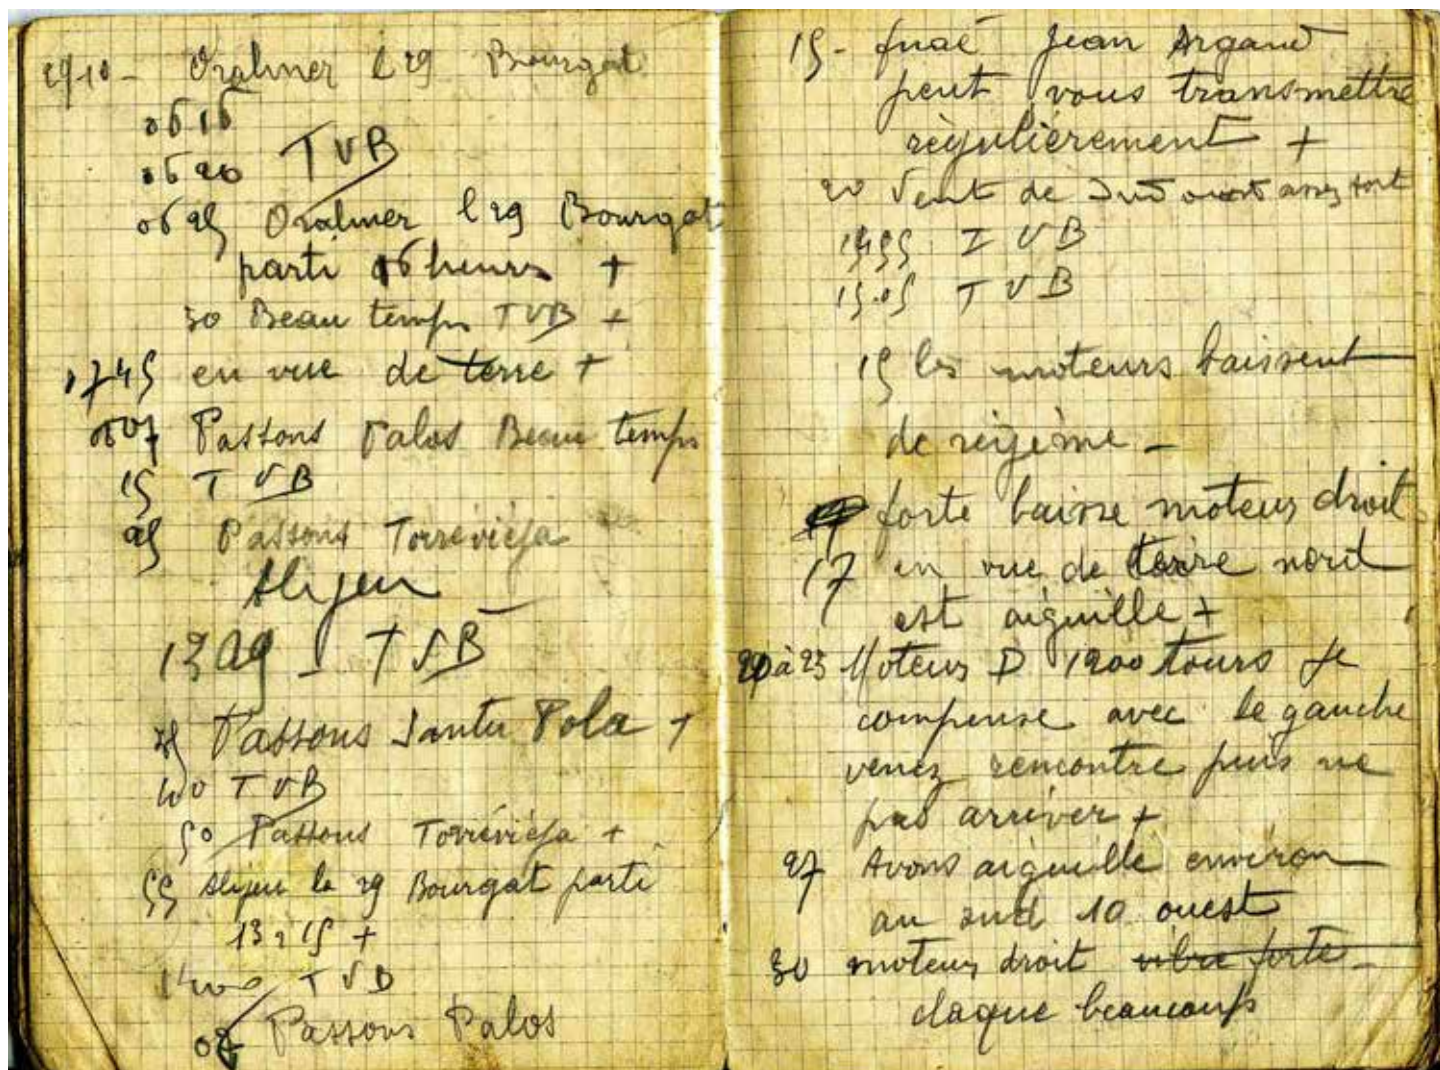 29/10 - Oralmer le 29 Bourgat
0616
0620 TVB
0625 Oralmer le 29 Bourgat
parti 06 heures +
30 Beau temps TVB +
1745 en vue de terre +
0807 Passons Palos Beau temps
15 TVB
25 Passons Torrevieja
Alijeu
1329 - TVB
35 Passons Santa Pola +
40 TVB
50 Passons Torrévieja +
55 Alijeu le 29 Bourgat parti
13 15 +
1400 TVB
07 Passons Palos
15 - Jean Argaud
peut vous transmettre
régulièrement +
20 Vent de Sud ouest assez fort
1455 TVB
15.05 TVB
15 les moteurs baissent
de régime -
forte baisse moteur droit
17 en vue de terre nord
est aiguille +
20 à 25 Moteur D 1200 tours je
compense avec le gauche
venez rencontre puis ne
pas arriver +
27 Avons aiguille environ
au sud 10 ouest
30 moteur droit vibre forte -
claque beaucoup